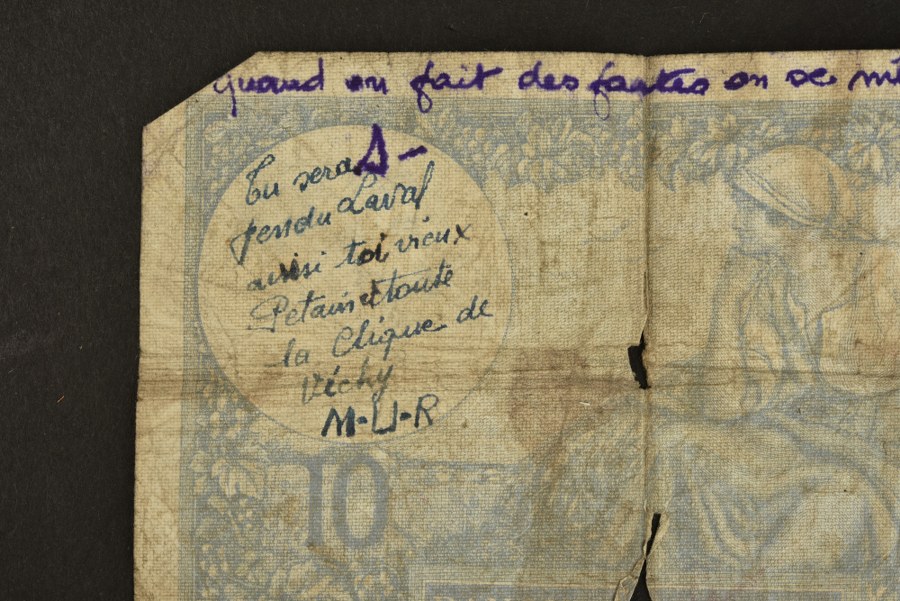 quand on fait des fautes on se
Tu seras
pendu Laval
aussi toi vieux
Petain et toute
la Clique de
Vichy
M-U-R
10